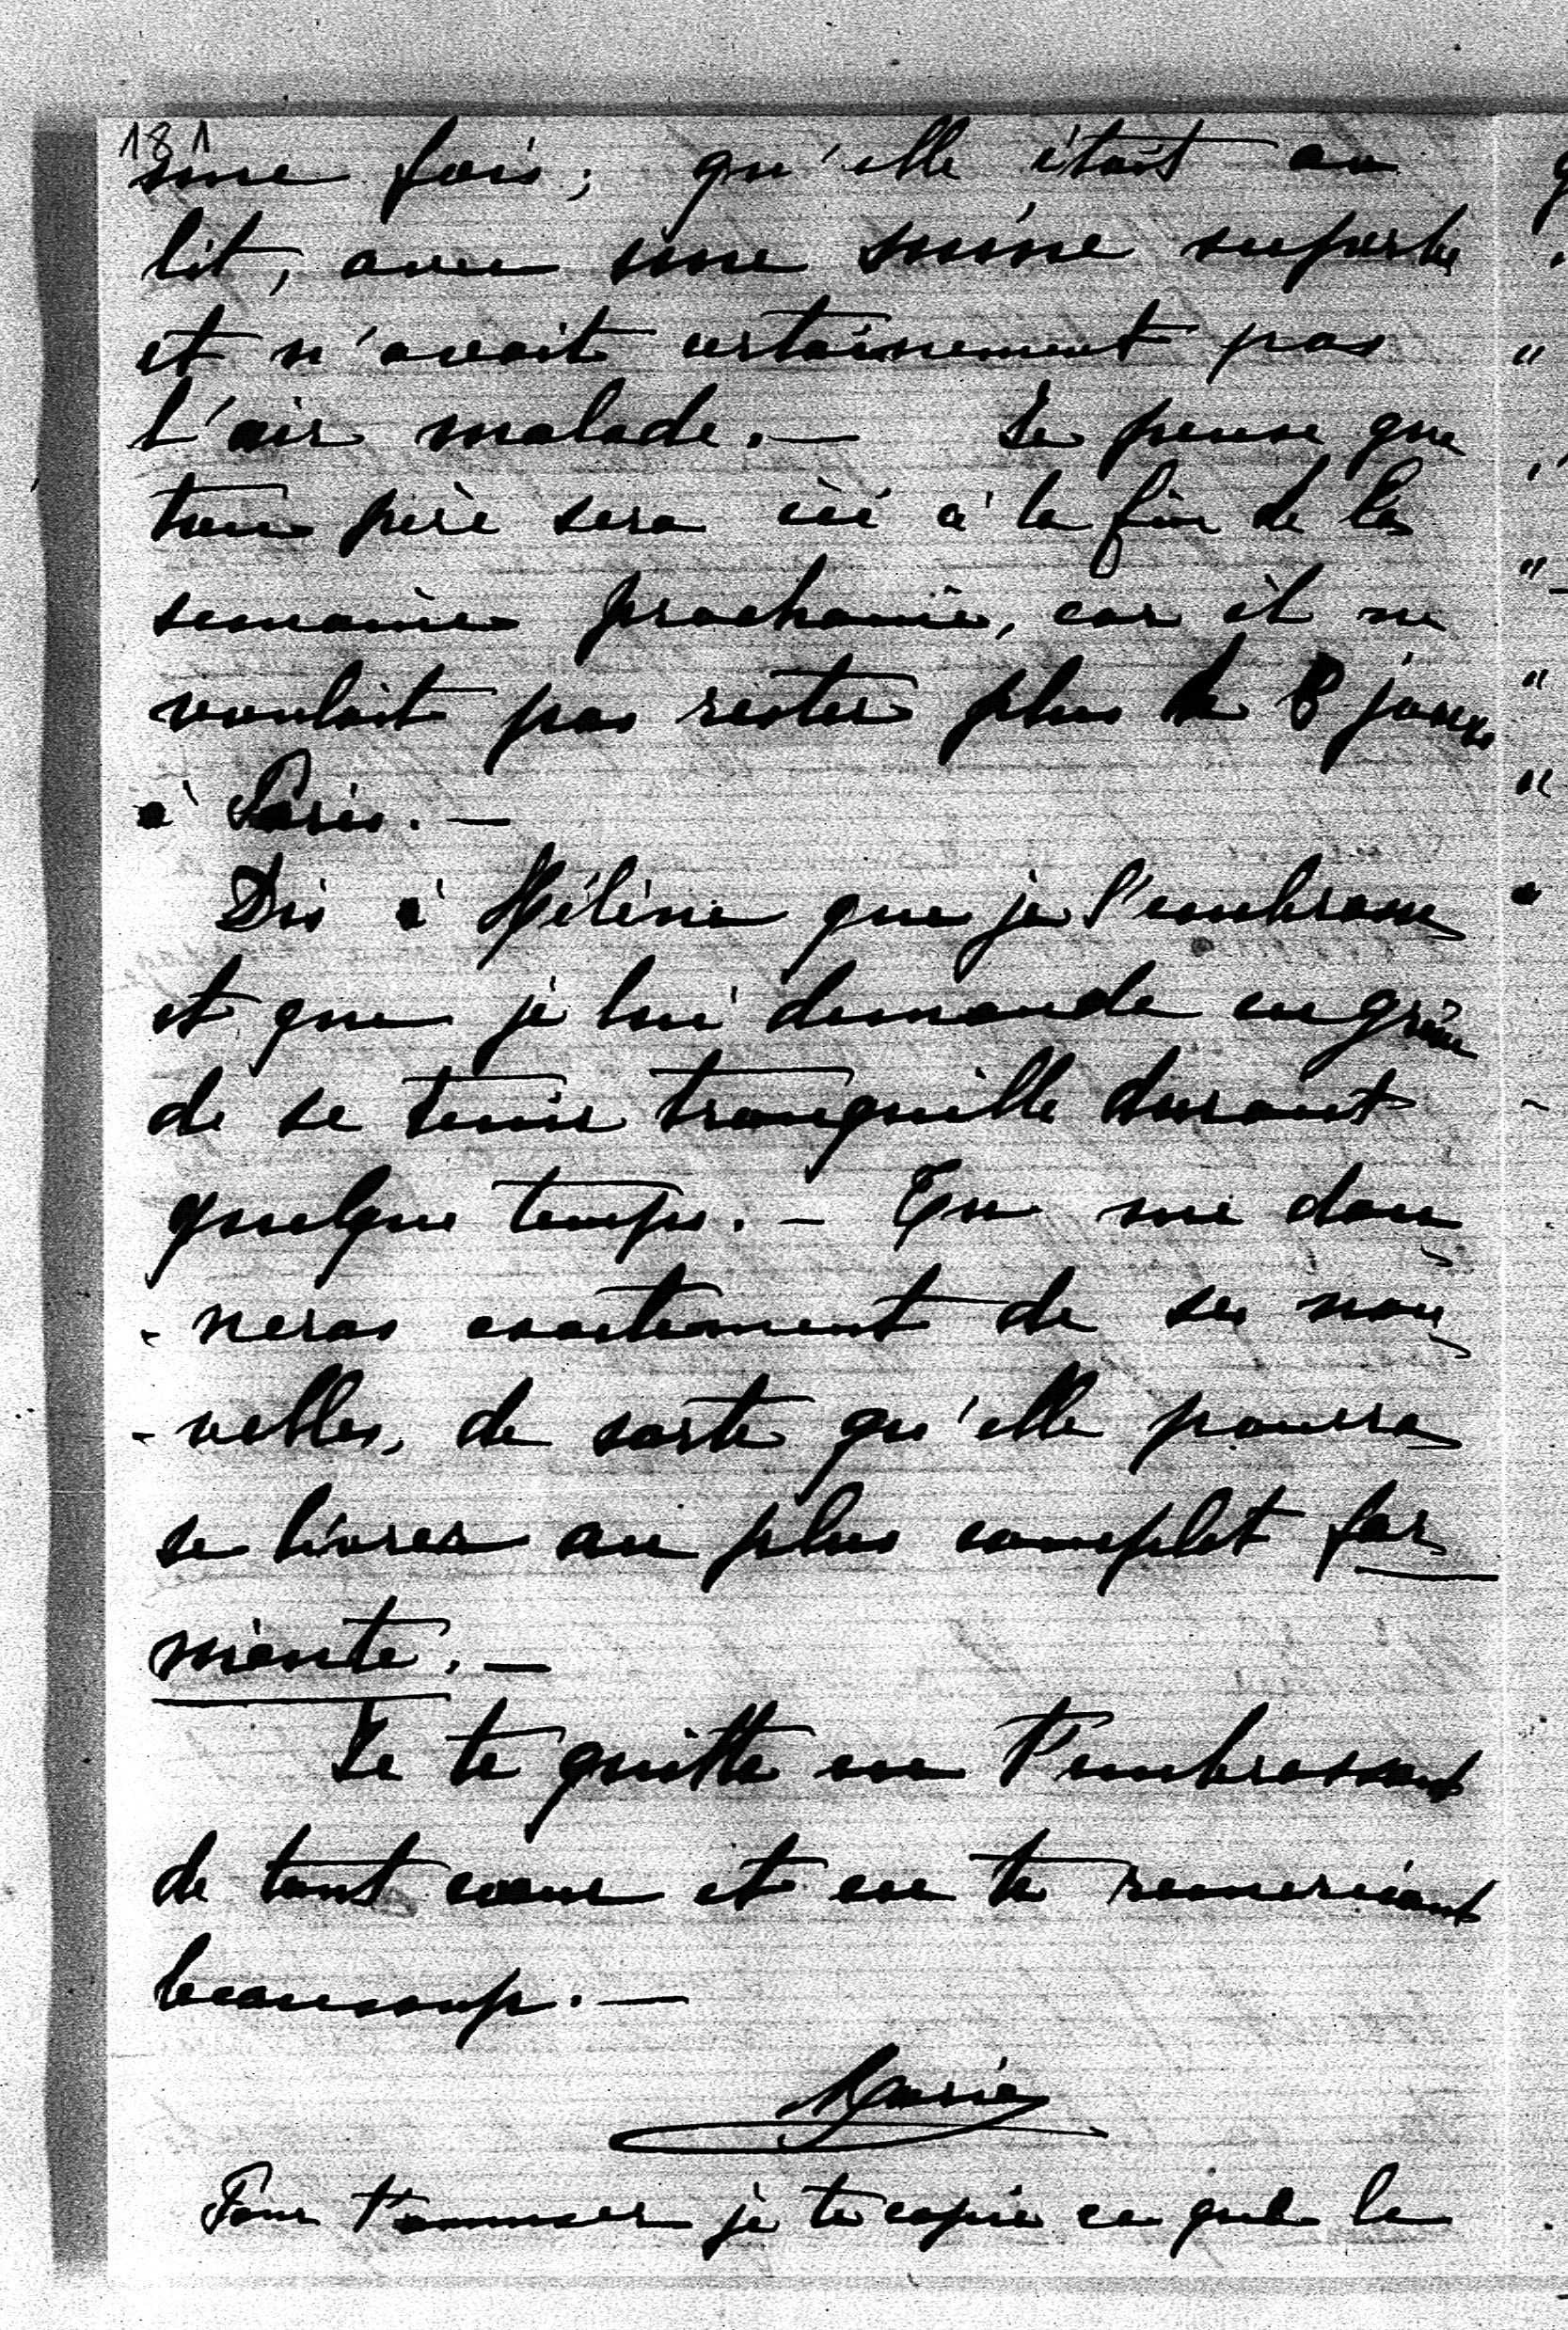 181
une fois; qu'elle était au
lit, avec une mine superbe
et n'avait certainement pas
l'air malade. — Je pense que
ton père sera ici à la fin de la
semaine prochaine, car il ne
voulait pas rester plus de 8 jours
à Paris. —
Dis à Hélène que je l'embrasse
et que je lui demande en grâce
de se tenir tranquille durant
quelque temps. — Tu me don-
-neras exactement de ses nou-
-velles, de sorte qu'elle pourra
se livrer au plus complet far
niente. —
Je te quitte en t'embrassant
de tout cœur et en te remerciant
beaucoup. —
Marie
Pour t'amuser je te copie ce que le